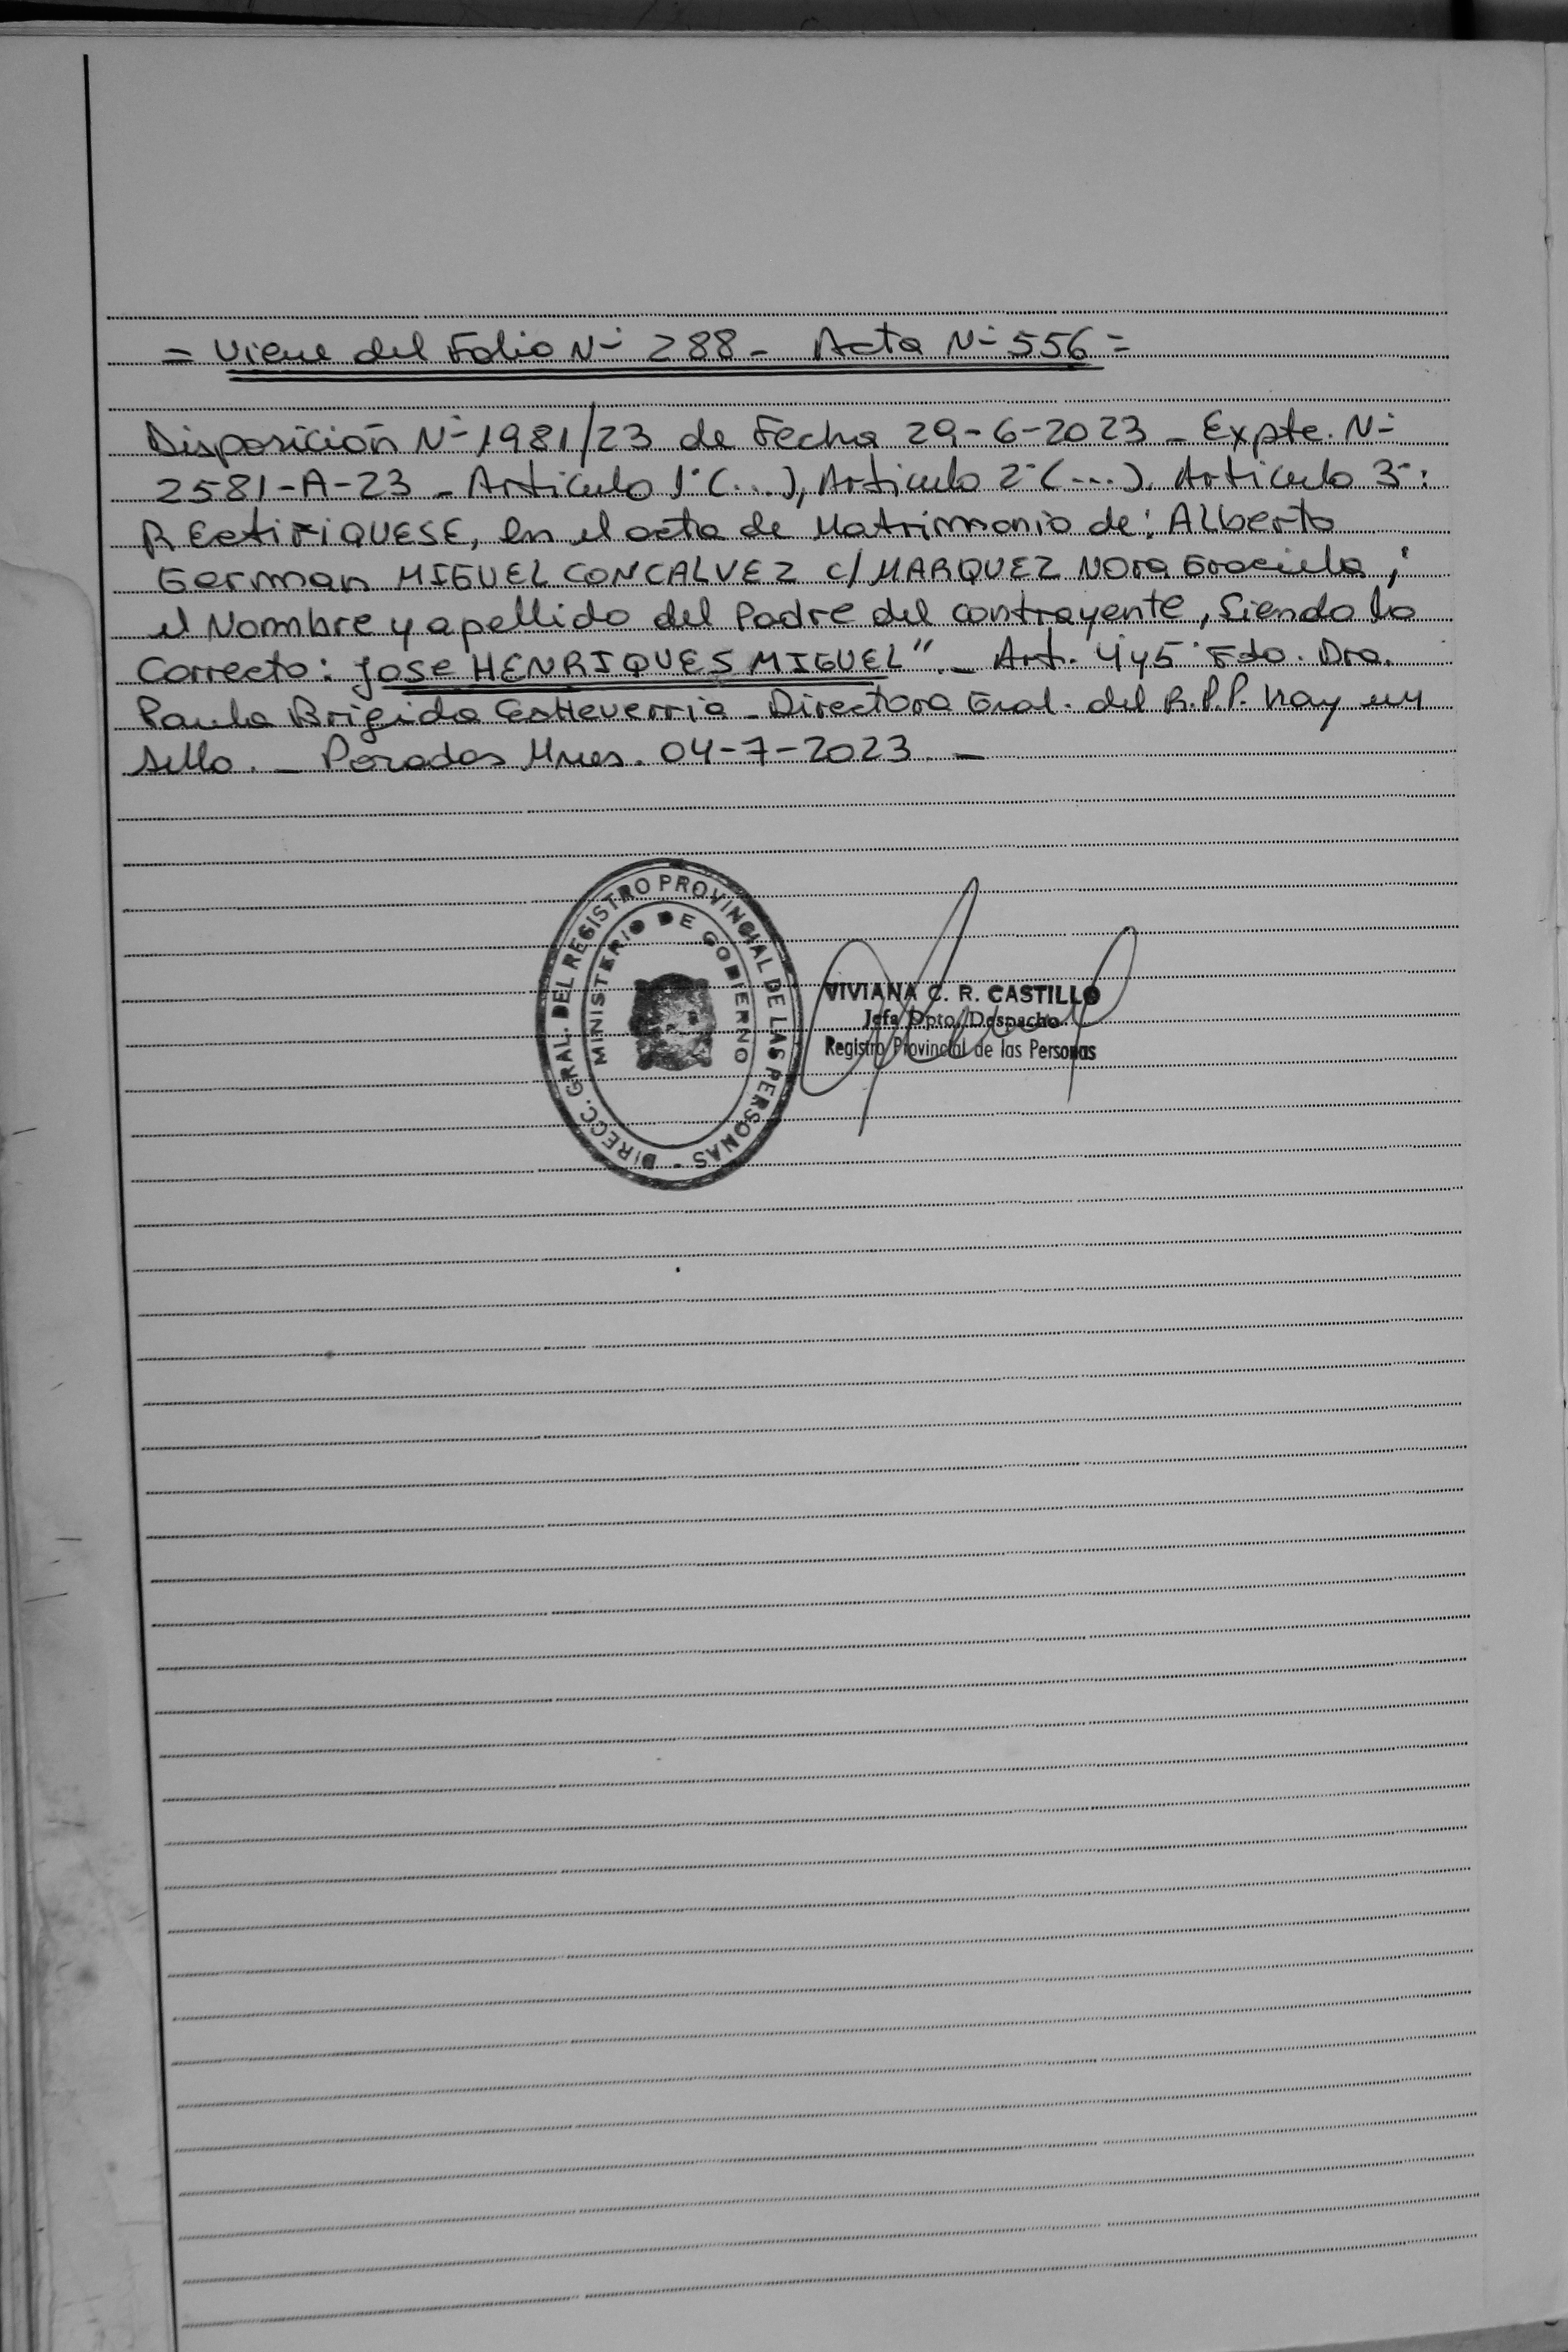 = Viene del Folio Nº 288 - Acta Nº 556 =
Disposición Nº 1981/23 de Fecha 29-6-2023 - Expte. Nº
2581-A-23 - Articulo 1º (...), Articulo 2º (...). Articulo 3º:
REctiFiQUESE, en el acta de Matrimonio de: ALberto
German MIGUEL CONCALVEZ c/ MARQUEZ NOra Graciela,
el Nombre y apellido del Padre del contrayente, Siendo lo
Correcto: Jose HENRIQUES MIGUEL". - Art. 4 y 5º Fdo. Dra.
Paula Brigida Estteverria - Directora Gral. del R.P.P. hay un
sello. - Posadas Mnes. 04-7-2023. -
DIRECC. GRAL. DEL REGISTRO PROVINCIAL DE LAS PERSONAS -
MINISTERIO DE GOBIERNO
VIVIANA C. R. CASTILLO
Jefa Dpto. Despacho
Registro Provincial de las Personas